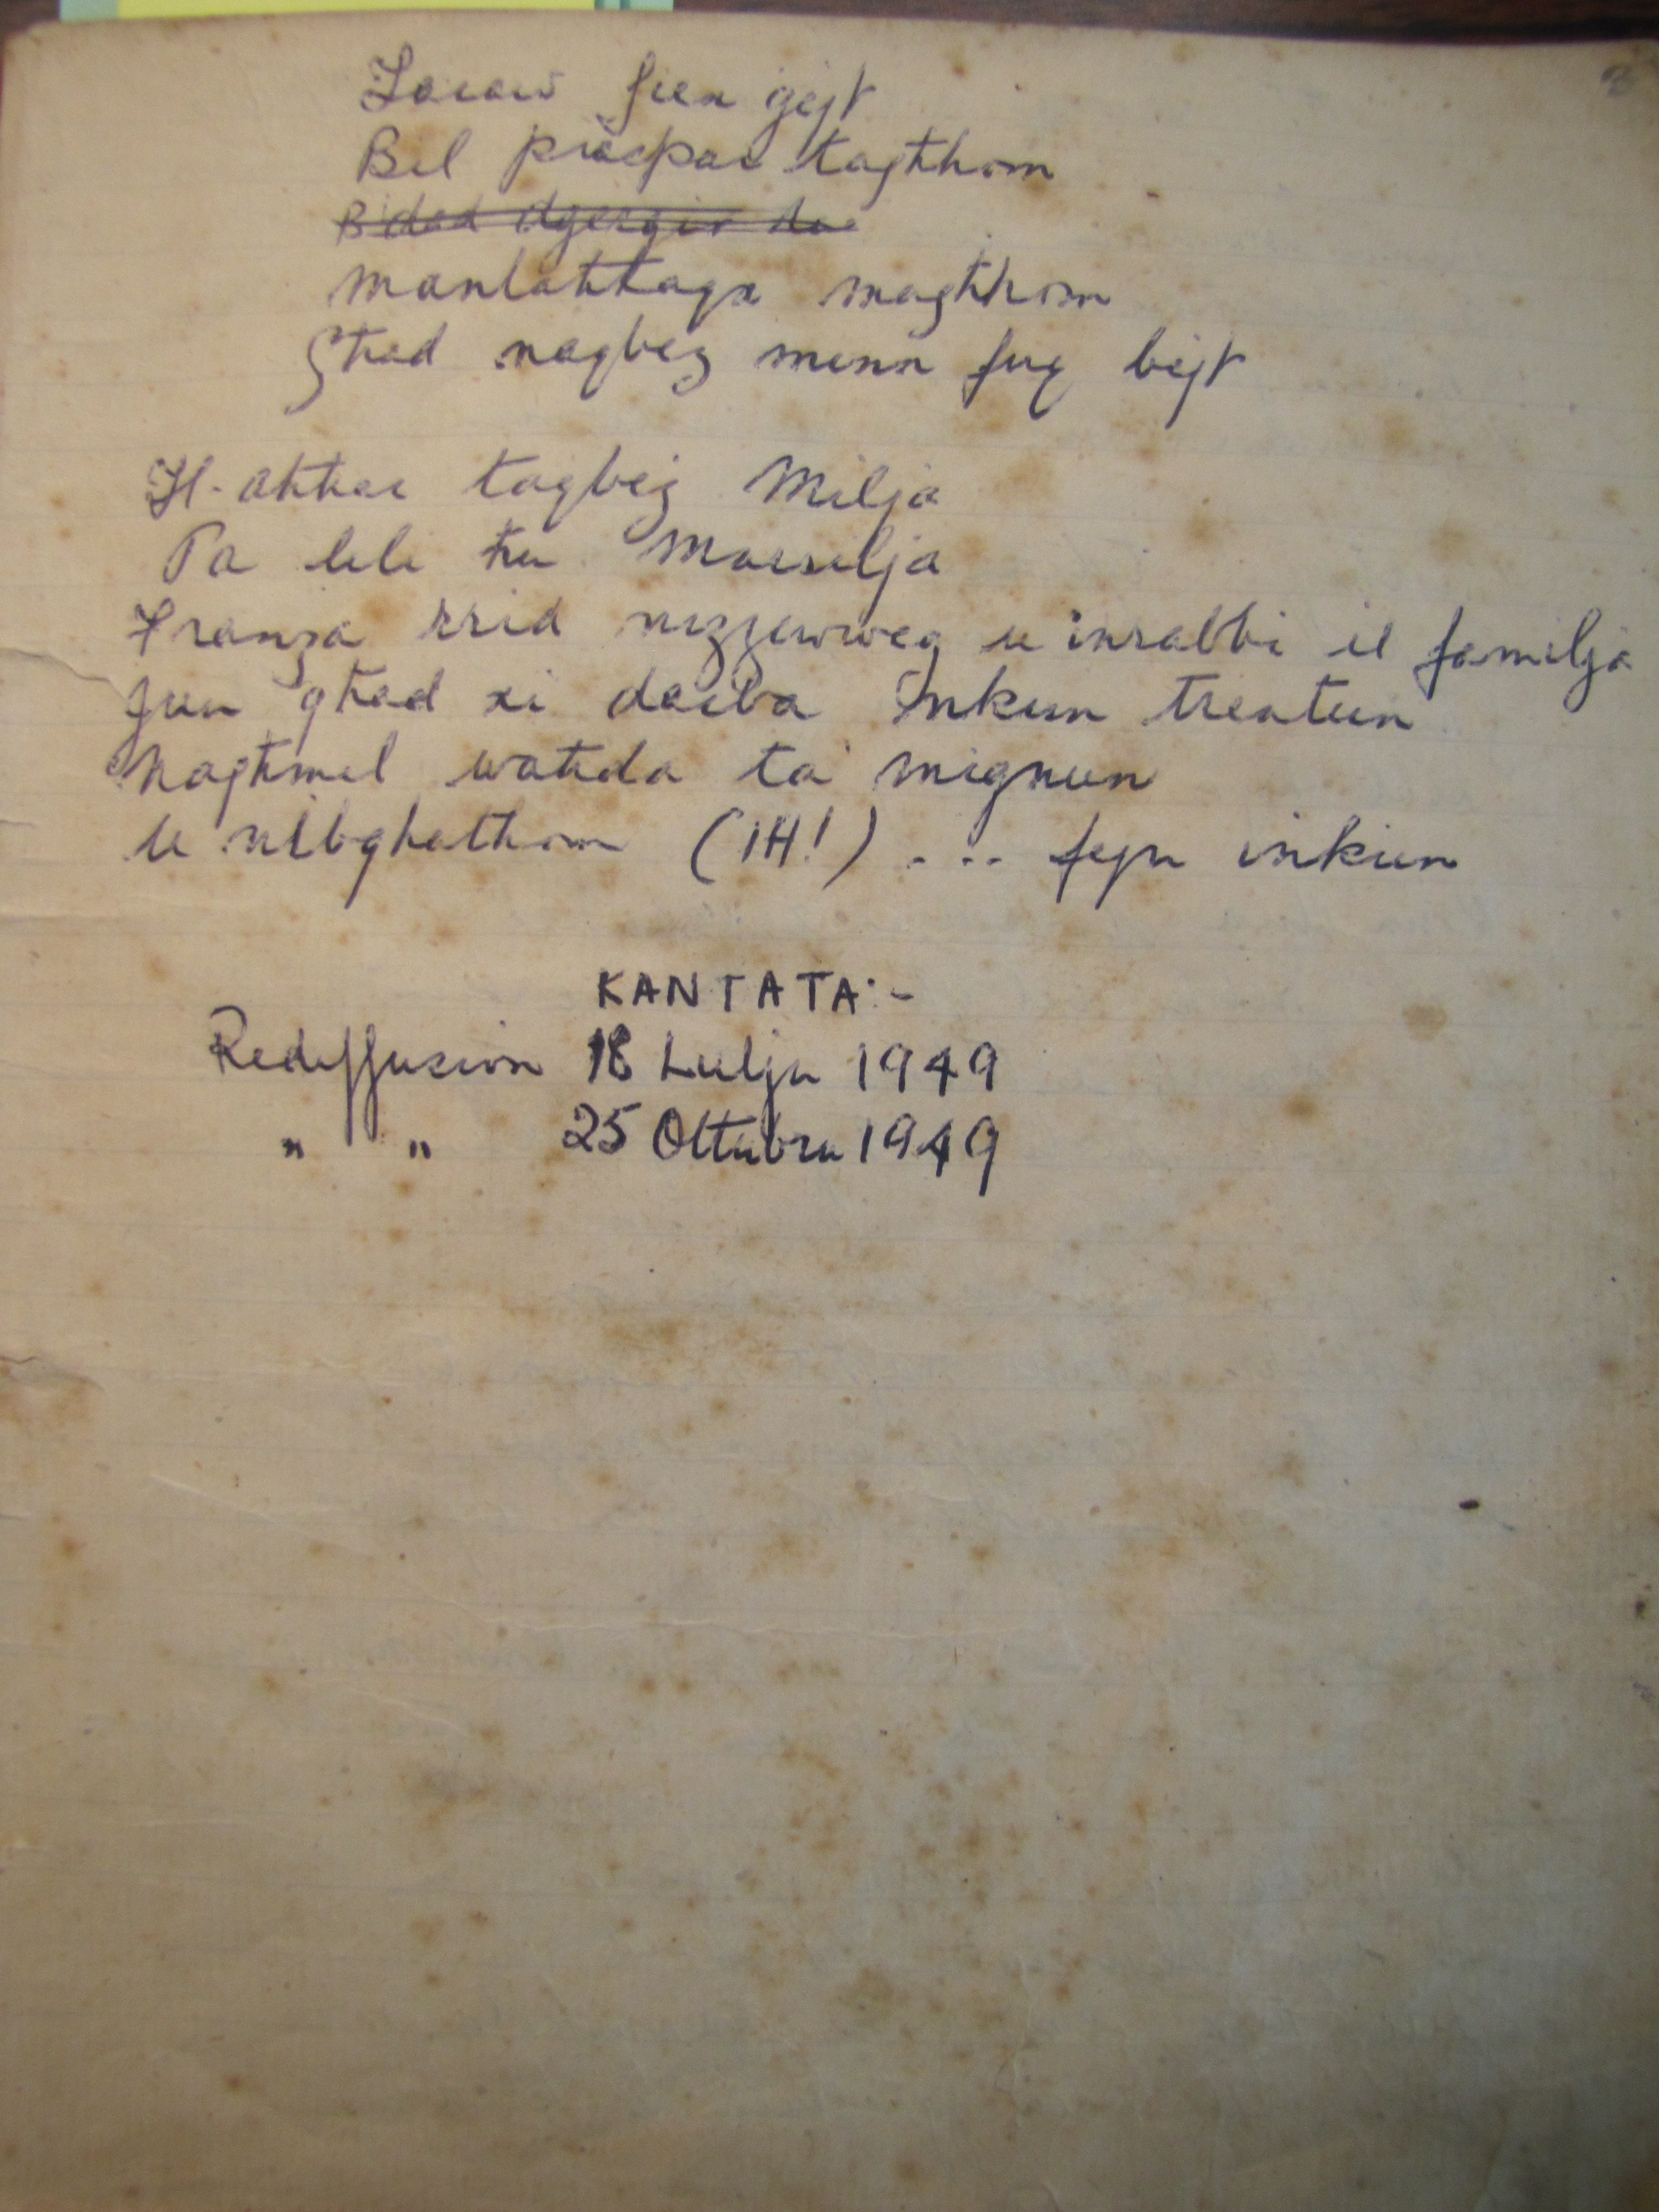 Laraw fiex ġejt
Bil priepac tagħhom
manlaħħaqx magħhom
Għad naqbeż minn fuq bejt
Il-aħħar taqbeż Milja
Ta lili hu Marsilja
Franza rrid nizzewweg u inrabbi il familja
Jien għad xi darba Inkun trentun
Nagħmel waħda ta' mignun
u nibgħathom (IH!) ... fejn inkun
KANTATA:-
Rediffusion 18 Lulju 1949
" " 25 Ottubru 1949